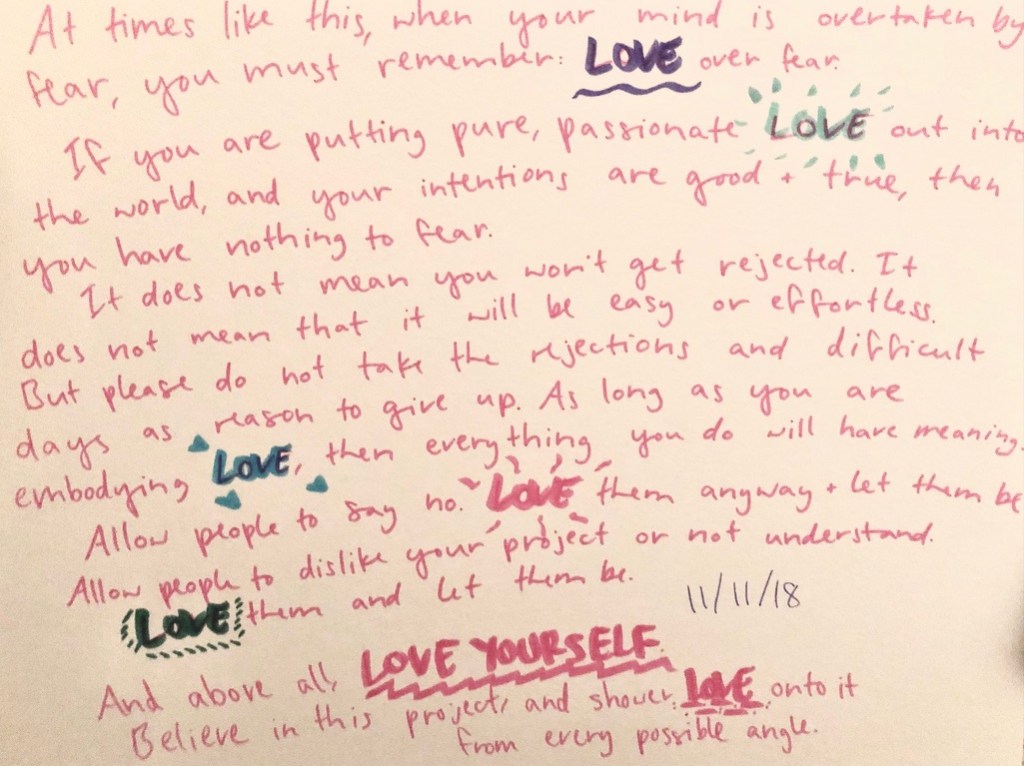 At times like this, when your mind is overtaken by
fear, you must remember: LOVE over fear.
If you are putting pure, passionate LOVE out into
the world, and your intentions are good + true, then
you have nothing to fear.
It does not mean you won't get rejected. It
does not mean that it will be easy or effortless.
But please do not take the rejections and difficult
days as reason to give up. As long as you are
embodying LOVE, then everything you do will have meaning.
Allow people to say no. LOVE them anyway + let them be
Allow people to dislike your project or not understand.
LOVE them and let them be.
11/11/18
And above all, LOVE YOURSELF.
Believe in this project, and shower LOVE onto it
from every possible angle.